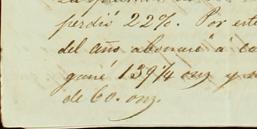 perdió 22%. Por este
del año abonaré á ca
gané 139¼ onz y
de 60. onz.